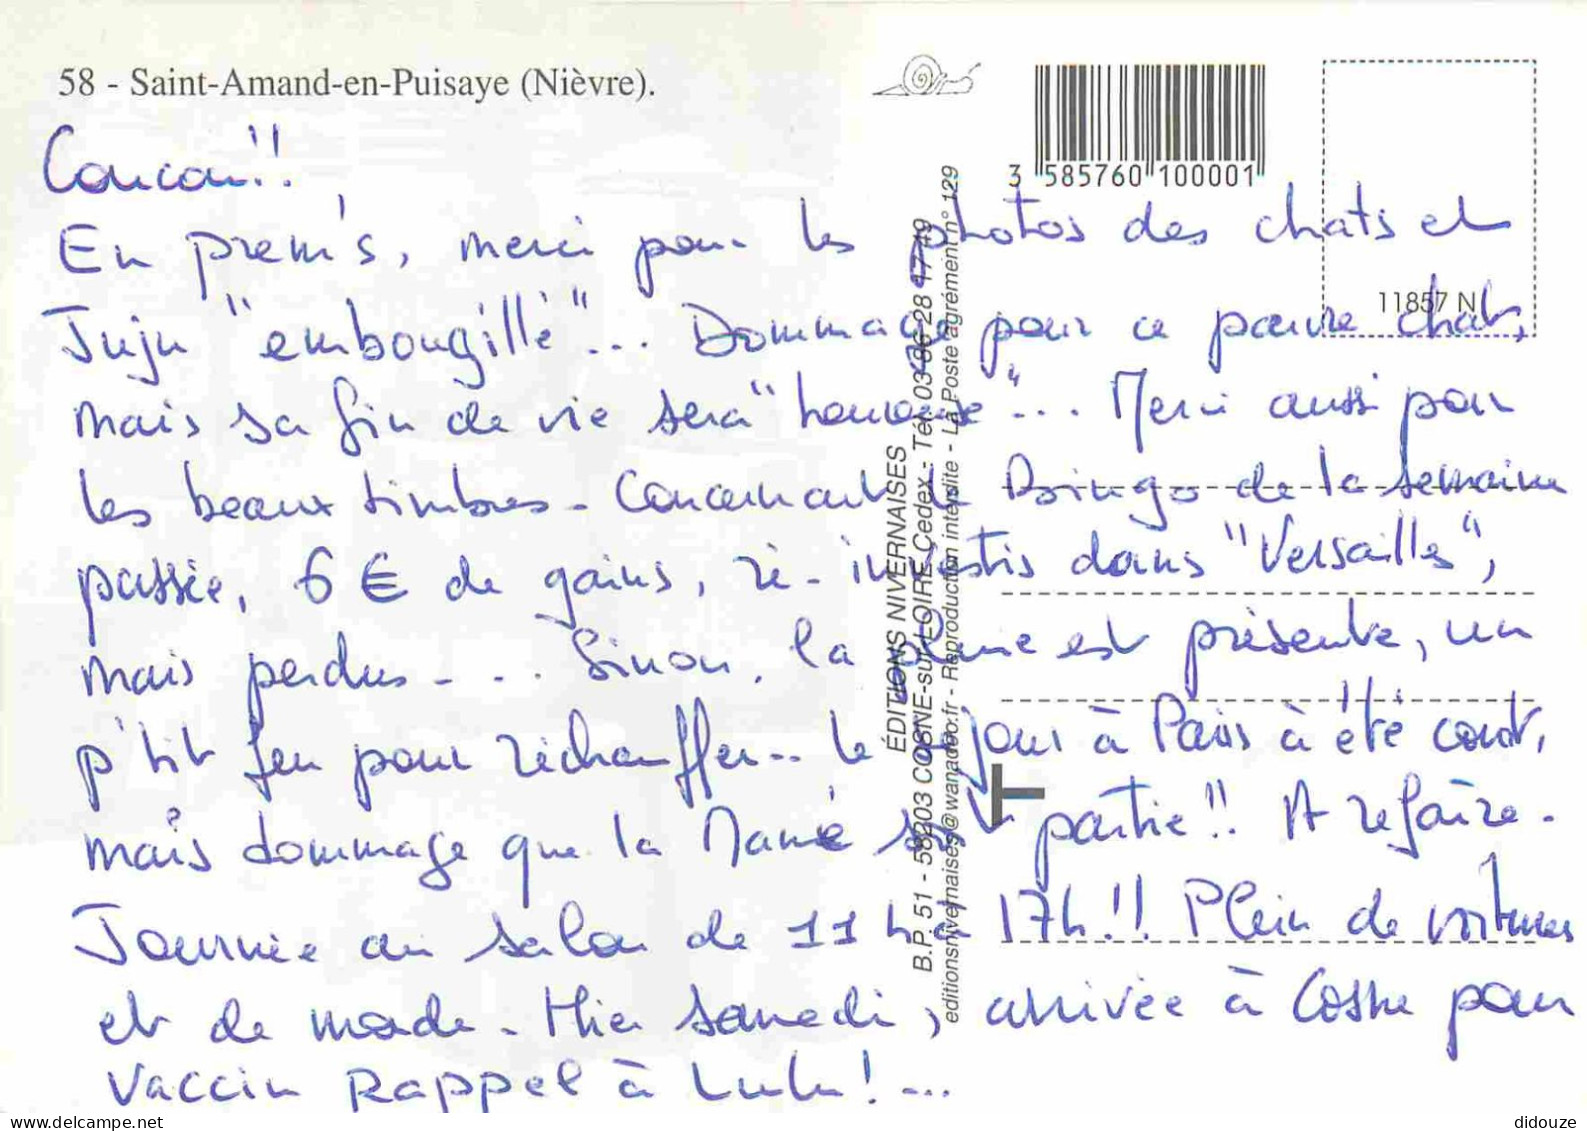 58 - Saint-Amand-en-Puisaye (Nièvre).
3 585760 100001
11857 N
Coucou!!
En prem's, merci pour les photos des chats et
Juju "embougillé"... Dommage pour ce pauvre chat,
mais sa fin de vie sera "heureuse"... Merci aussi pour
les beaux timbres - Concernant le Bingo de la semaine
passée, 6 € de gains, ré-investis dans "Versailles",
mais perdus - ... Sinon, la pluie est présente, un
p'tit feu pour réchauffer... le séjour à Paris à été court,
mais dommage que la Mamie soit partie!! A refaire.
Journée au salon de 11 h à 17h!! Plein de voitures
et de monde - Hier samedi, arrivée à Cosne pour
Vaccin Rappel à Lulu!...
ÉDITIONS NIVERNAISES
B.P. 51 - 58203 COSNE-sur-LOIRE Cedex - Tél. 03 86 28 17 49
editionsnivernaises@wanadoo.fr - Reproduction interdite - La Poste agrément n° 129
T
didouze